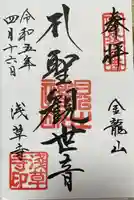 奉拝
金龍山
聖観世音
令和五年
四月十六日
浅草寺